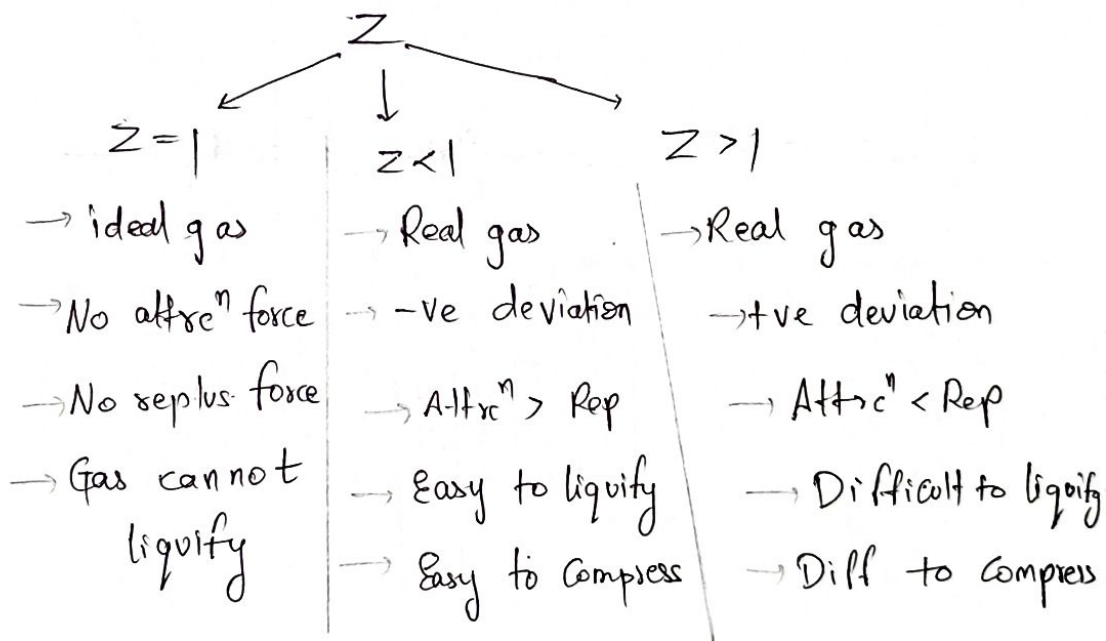 Z
Z=1
→ ideal gas
→ No attrcⁿ force
→ No replus. force
→ Gas cannot
liquify
Z<1
→ Real gas
→ -ve deviation
→ Attrcⁿ > Rep
→ Easy to liquify
→ Easy to Compress
Z>1
→ Real gas
→ +ve deviation
→ Attrcⁿ < Rep
→ Difficult to liquify
→ Diff to compress